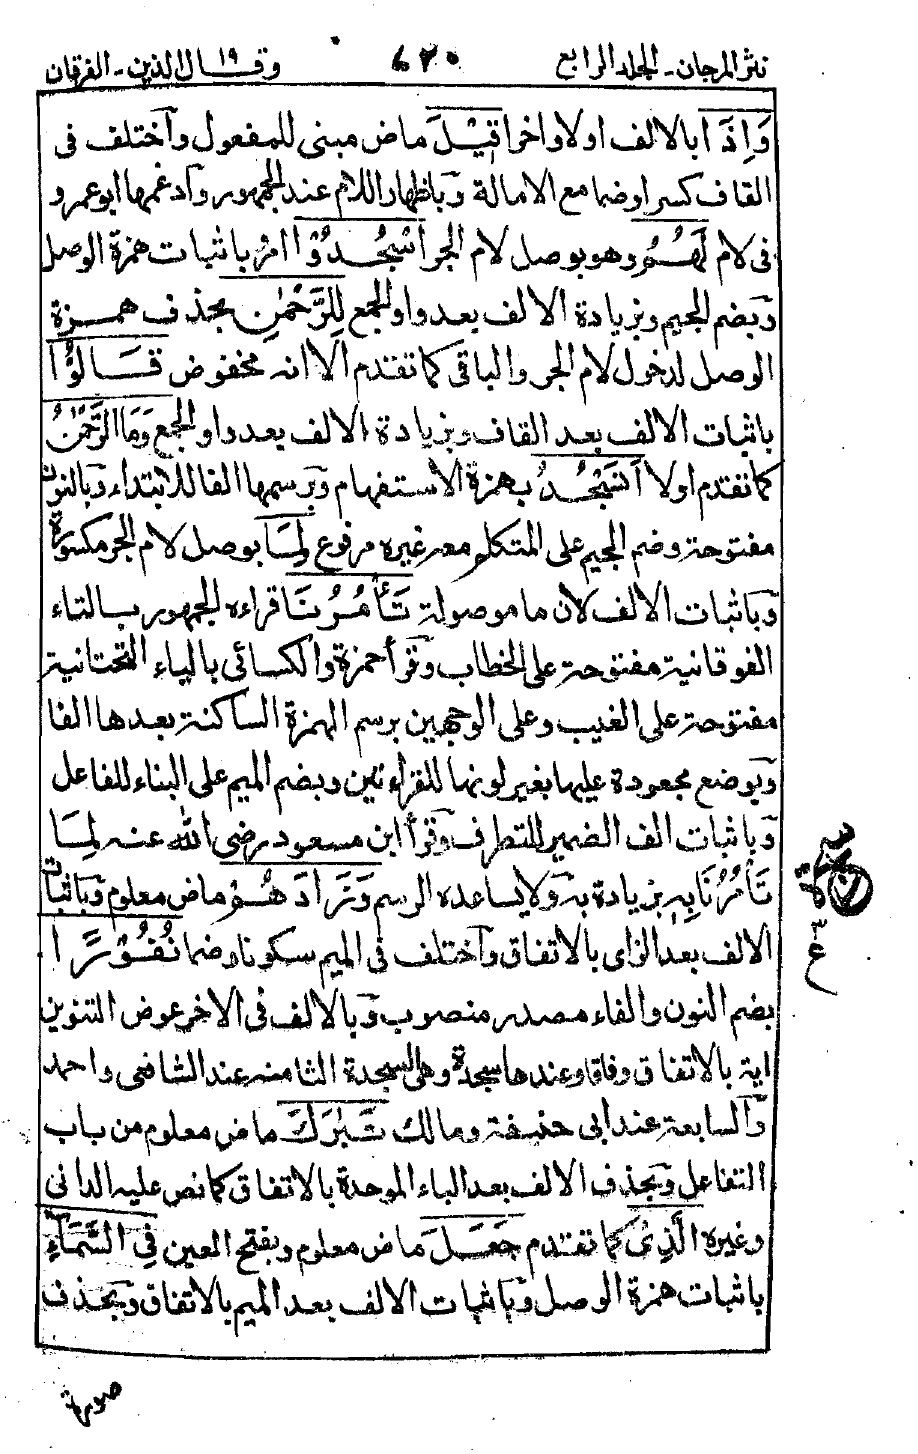 نثر المرجان - الجلد الرابع ٦٢٠ وقال الذين ١٩ - الفرقان
وَاِذَا بالالف اولا واخرا قِيْلَ ماض مبنى للمفعول واختلف فى
القاف كسرا وضما مع الامالة وباظهار اللام عند الجمهور وادغمها ابو عمرو
فى لام لَهُمُ وهو بوصل لام الجر اسْجُدُوْا امر باثبات همزة الوصل
وبضم الجيم وبزيادة الالف بعد واو الجمع لِلرَّحْمٰنِ بحذف همزة
الوصل لدخول لام الجر والباقى كما تقدم الا انه مخفوض قَالُوْا
باثبات الالف بعد القاف وبزيادة الالف بعد واو الجمع وَمَا الرَّحْمٰنُ
كما تقدم اولا اَنَسْجُدُ بهمزة الاستفهام وبرسمها الفا للابتداء وبالنون
مفتوحة وضم الجيم على المتكلم معه غيره مرفوع لِمَا بوصل لام الجر مكسورة
وباثبات الالف لان ما موصولة تَأْمُرُنَا قراءه الجمهور بالتاء
الفوقانية مفتوحة على الخطاب وقرأ حمزة والكسائى بالياء التحتانية
مفتوحة على الغيب وعلى الوجهين برسم الهمزة الساكنة بعدها الفا
وبوضع مجعودة عليها بغير لونها للقراءتين وبضم الميم على البناء للفاعل
وباثبات الف الضمير للتطرف وقرأ ابن مسعود رضى الله عنه لِمَا
تَأْمُرُنَا بِهٖ بزيادة به ولا يساعده الرسم وَزَادَهُمْ ماض معلوم وباثبات
الالف بعد الزاى بالاتفاق واختلف فى الميم سكونا وضما نُفُوْرًا
بضم النون والفاء مصدر منصوب وبالالف فى الاخر عوض التنوين
اية بالاتفاق وفاقا وعندها سجدة وهى السجدة الثامنة عند الشافعى واحمد
والسابعة عند ابى حنيفة ومالك تَبٰرَكَ ماض معلوم من باب
التفاعل وبحذف الالف بعد الباء الموحدة بالاتفاق كما نص عليه الدانى
وغيره الَّذِىْ كما تقدم جَعَلَ ماض معلوم وبفتح العين فِى السَّمَاءِ
باثبات همزة الوصل وباثبات الالف بعد الميم بالاتفاق وبحذف
صورة